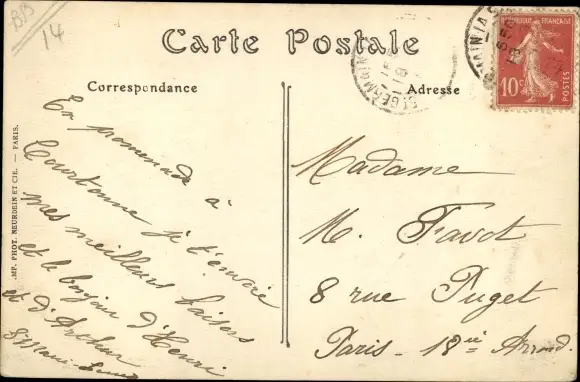 BB
14
Carte Postale
Correspondance
Adresse
RÉPUBLIQUE FRANÇAISE
10c
POSTES
ST GERMAIN
IMP. PHOT. NEURDEIN ET CIE. — PARIS.
En promenade à
Courtonne je t'envoie
mes meilleurs baisers
et le bonjour d'Henri
et d'Arthur
Madame
M. Favot
8 rue Puget
Paris - 18iè Arrond.